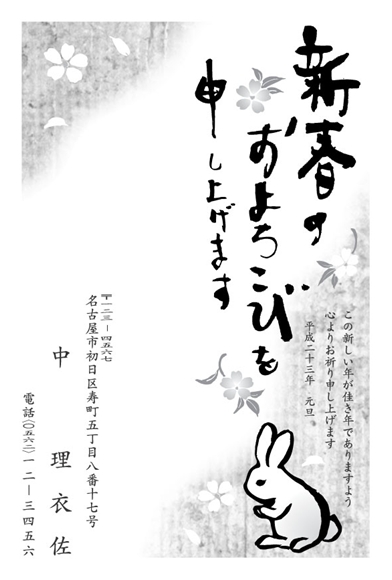 新春の
およろこびを
申し上げます
この新しい年が佳き年でありますよう
心よりお祈り申し上げます
平成二十三年 元旦
〒一二三－四五六七
名古屋市初日区寿町五丁目八番十七号
中 理衣佐
電話(〇五六二)一二－三四五六